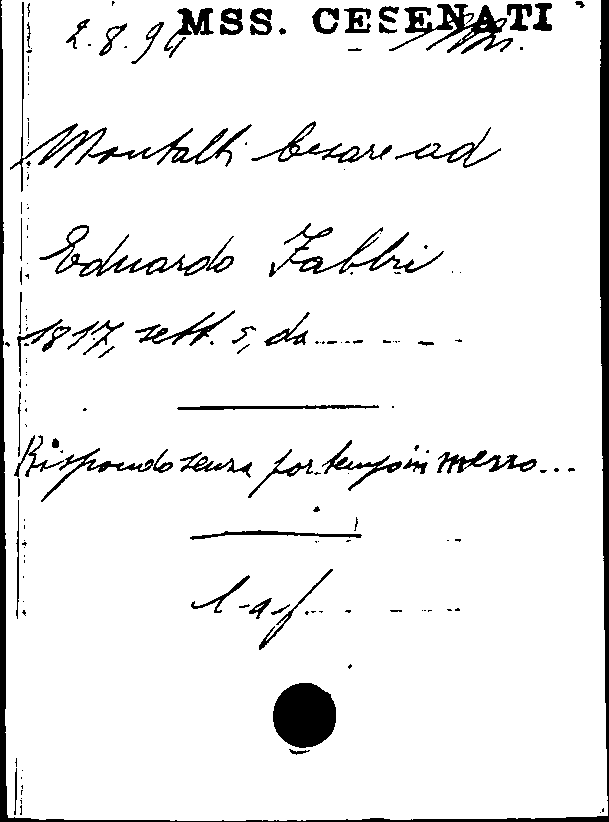 MSS. CESENATI
2.8.94
Montalti Cesare ad
Eduardo Fabbri
1817, sett. 5, da
Rispondo senza por tempo in mezzo...
l.a.f.